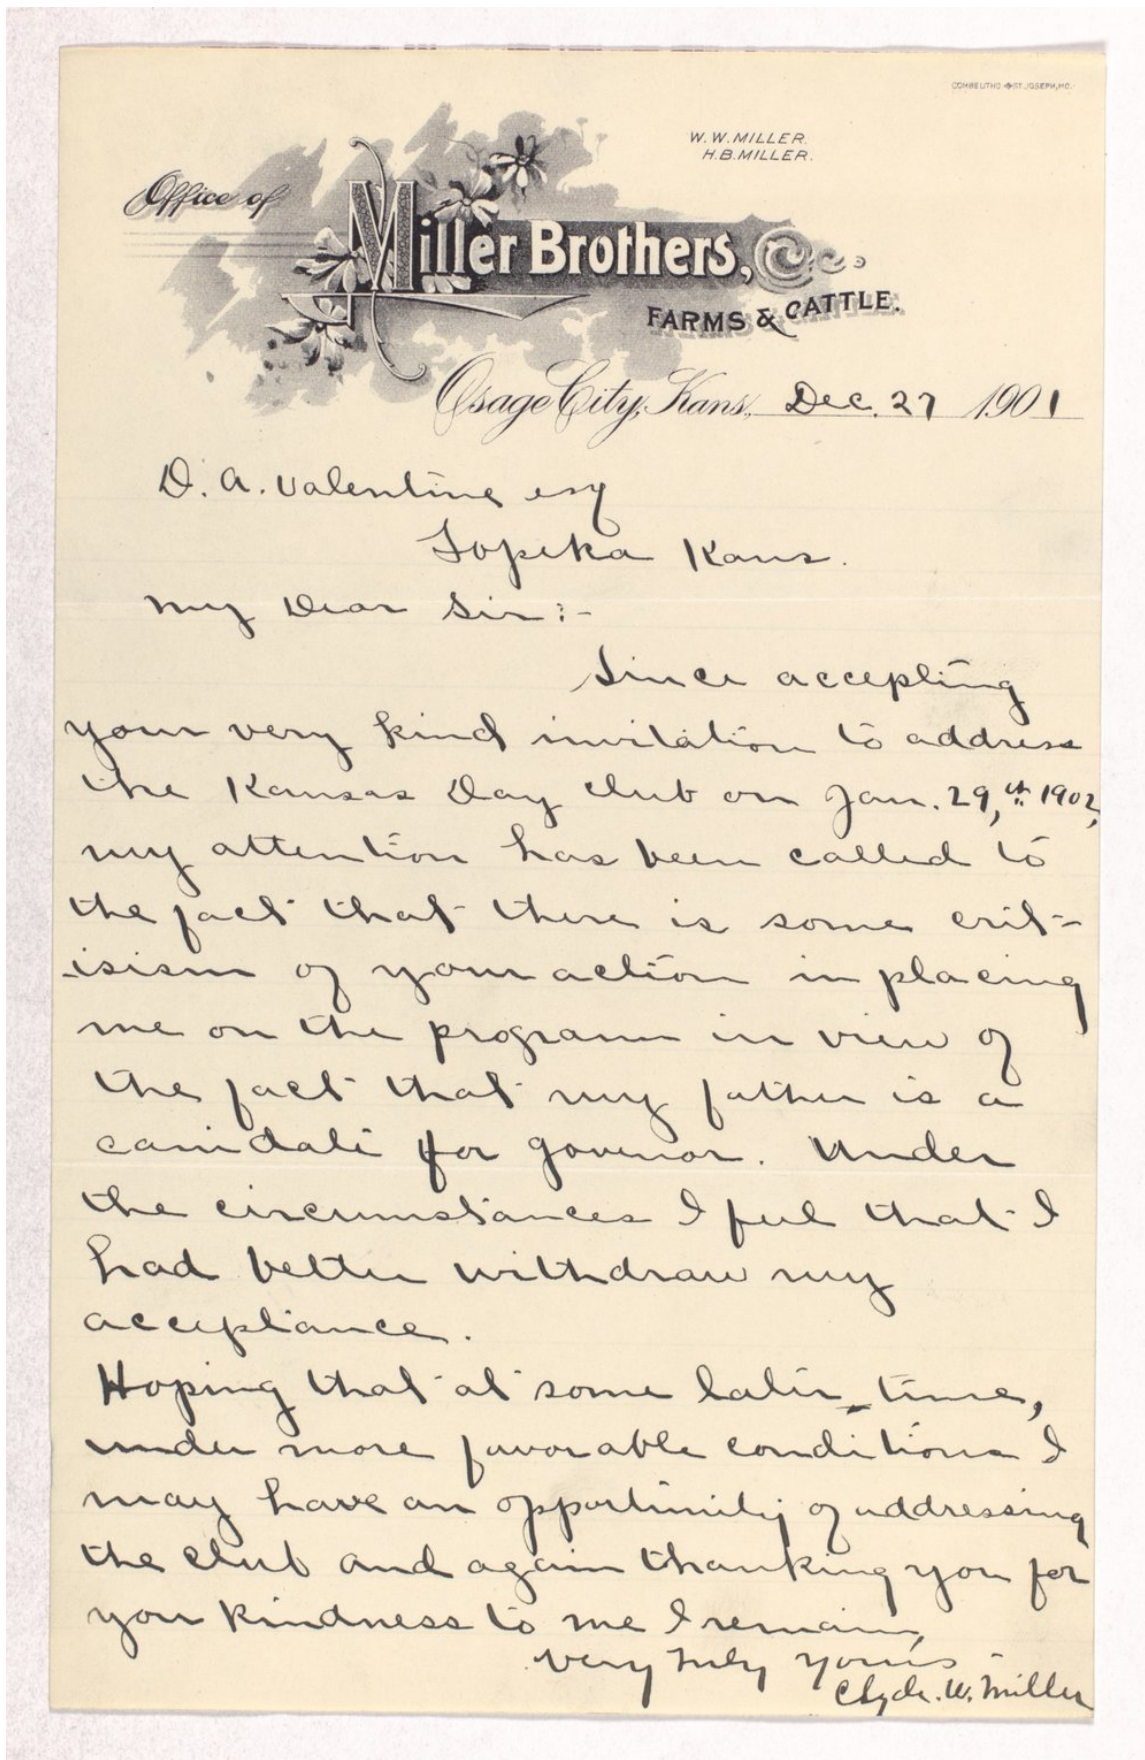 COMBE LITHO ST. JOSEPH, MO.
W. W. MILLER.
H. B. MILLER.
Office of
Miller Brothers, & Co.
FARMS & CATTLE.
Osage City, Kans., Dec. 27 1901
D. A. Valentine esq
Topeka Kans.
My Dear Sir:-
Since accepting
your very kind invitation to address
the Kansas Day club on Jan. 29,th 1902,
my attention has been called to
the fact that there is some crit-
isism of your action in placing
me on the program in view of
the fact that my father is a
canidate for govenor. Under
the circumstances I feel that I
had better withdraw my
acceptance.
Hoping that at some later time,
under more favorable conditions I
may have an opportunity of addressing
the club and again thanking you for
you kindness to me I remain,
very truly yours
Clyde. W. Miller